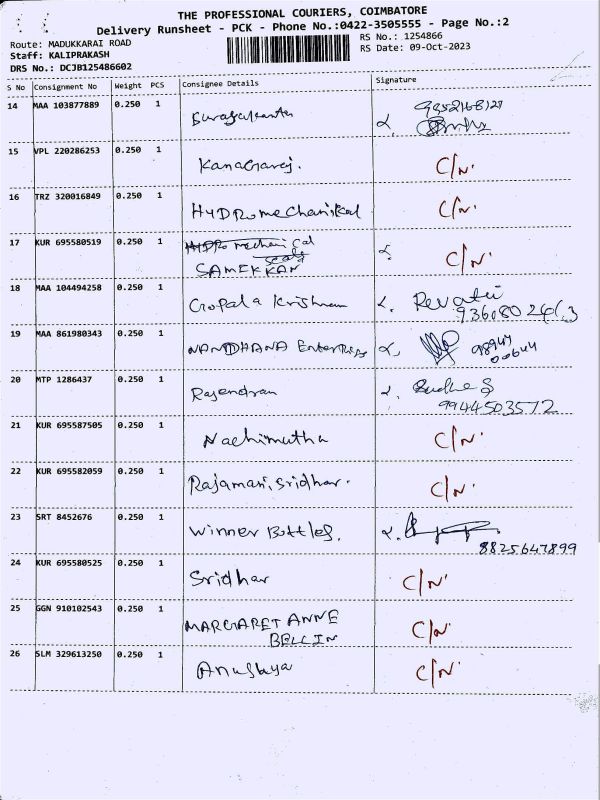 THE PROFESSIONAL COURIERS, COIMBATORE
Delivery Runsheet - PCK - Phone No.:0422-3505555 - Page No.:2
Route: MADUKKARAI ROAD RS No.: 1254866
Staff: KALIPRAKASH RS Date: 09-Oct-2023
DRS No.: DCJB125486602
S No Consignment No Weight PCS Consignee Details Signature
14 MAA 103877889 0.250 1
15 VPL 220286253 0.250 1 Kanagaraj. C/N.
16 TRZ 320016849 0.250 1 HYDRomechanikal C/N.
17 KUR 695580519 0.250 1 HYDRo mechanical
scale
SAMEKKAN C/N.
18 MAA 104494258 0.250 1 Gopala Krishnan Revathi
19 MAA 861980343 0.250 1 NANDHANA Enterprises 98944
00644
20 MTP 1286437 0.250 1 Rajendran
9944503572
21 KUR 695587505 0.250 1 Nachimuthu C/N.
22 KUR 695582059 0.250 1 Rajamani, Sridhar. C/N.
23 SRT 8452676 0.250 1 Winner Bottles.
8825647899
24 KUR 695580525 0.250 1 Sridhar C/N.
25 GGN 910102543 0.250 1 MARGARET ANNE
BELLIN C/N.
26 SLM 329613250 0.250 1 Anushya C/N.